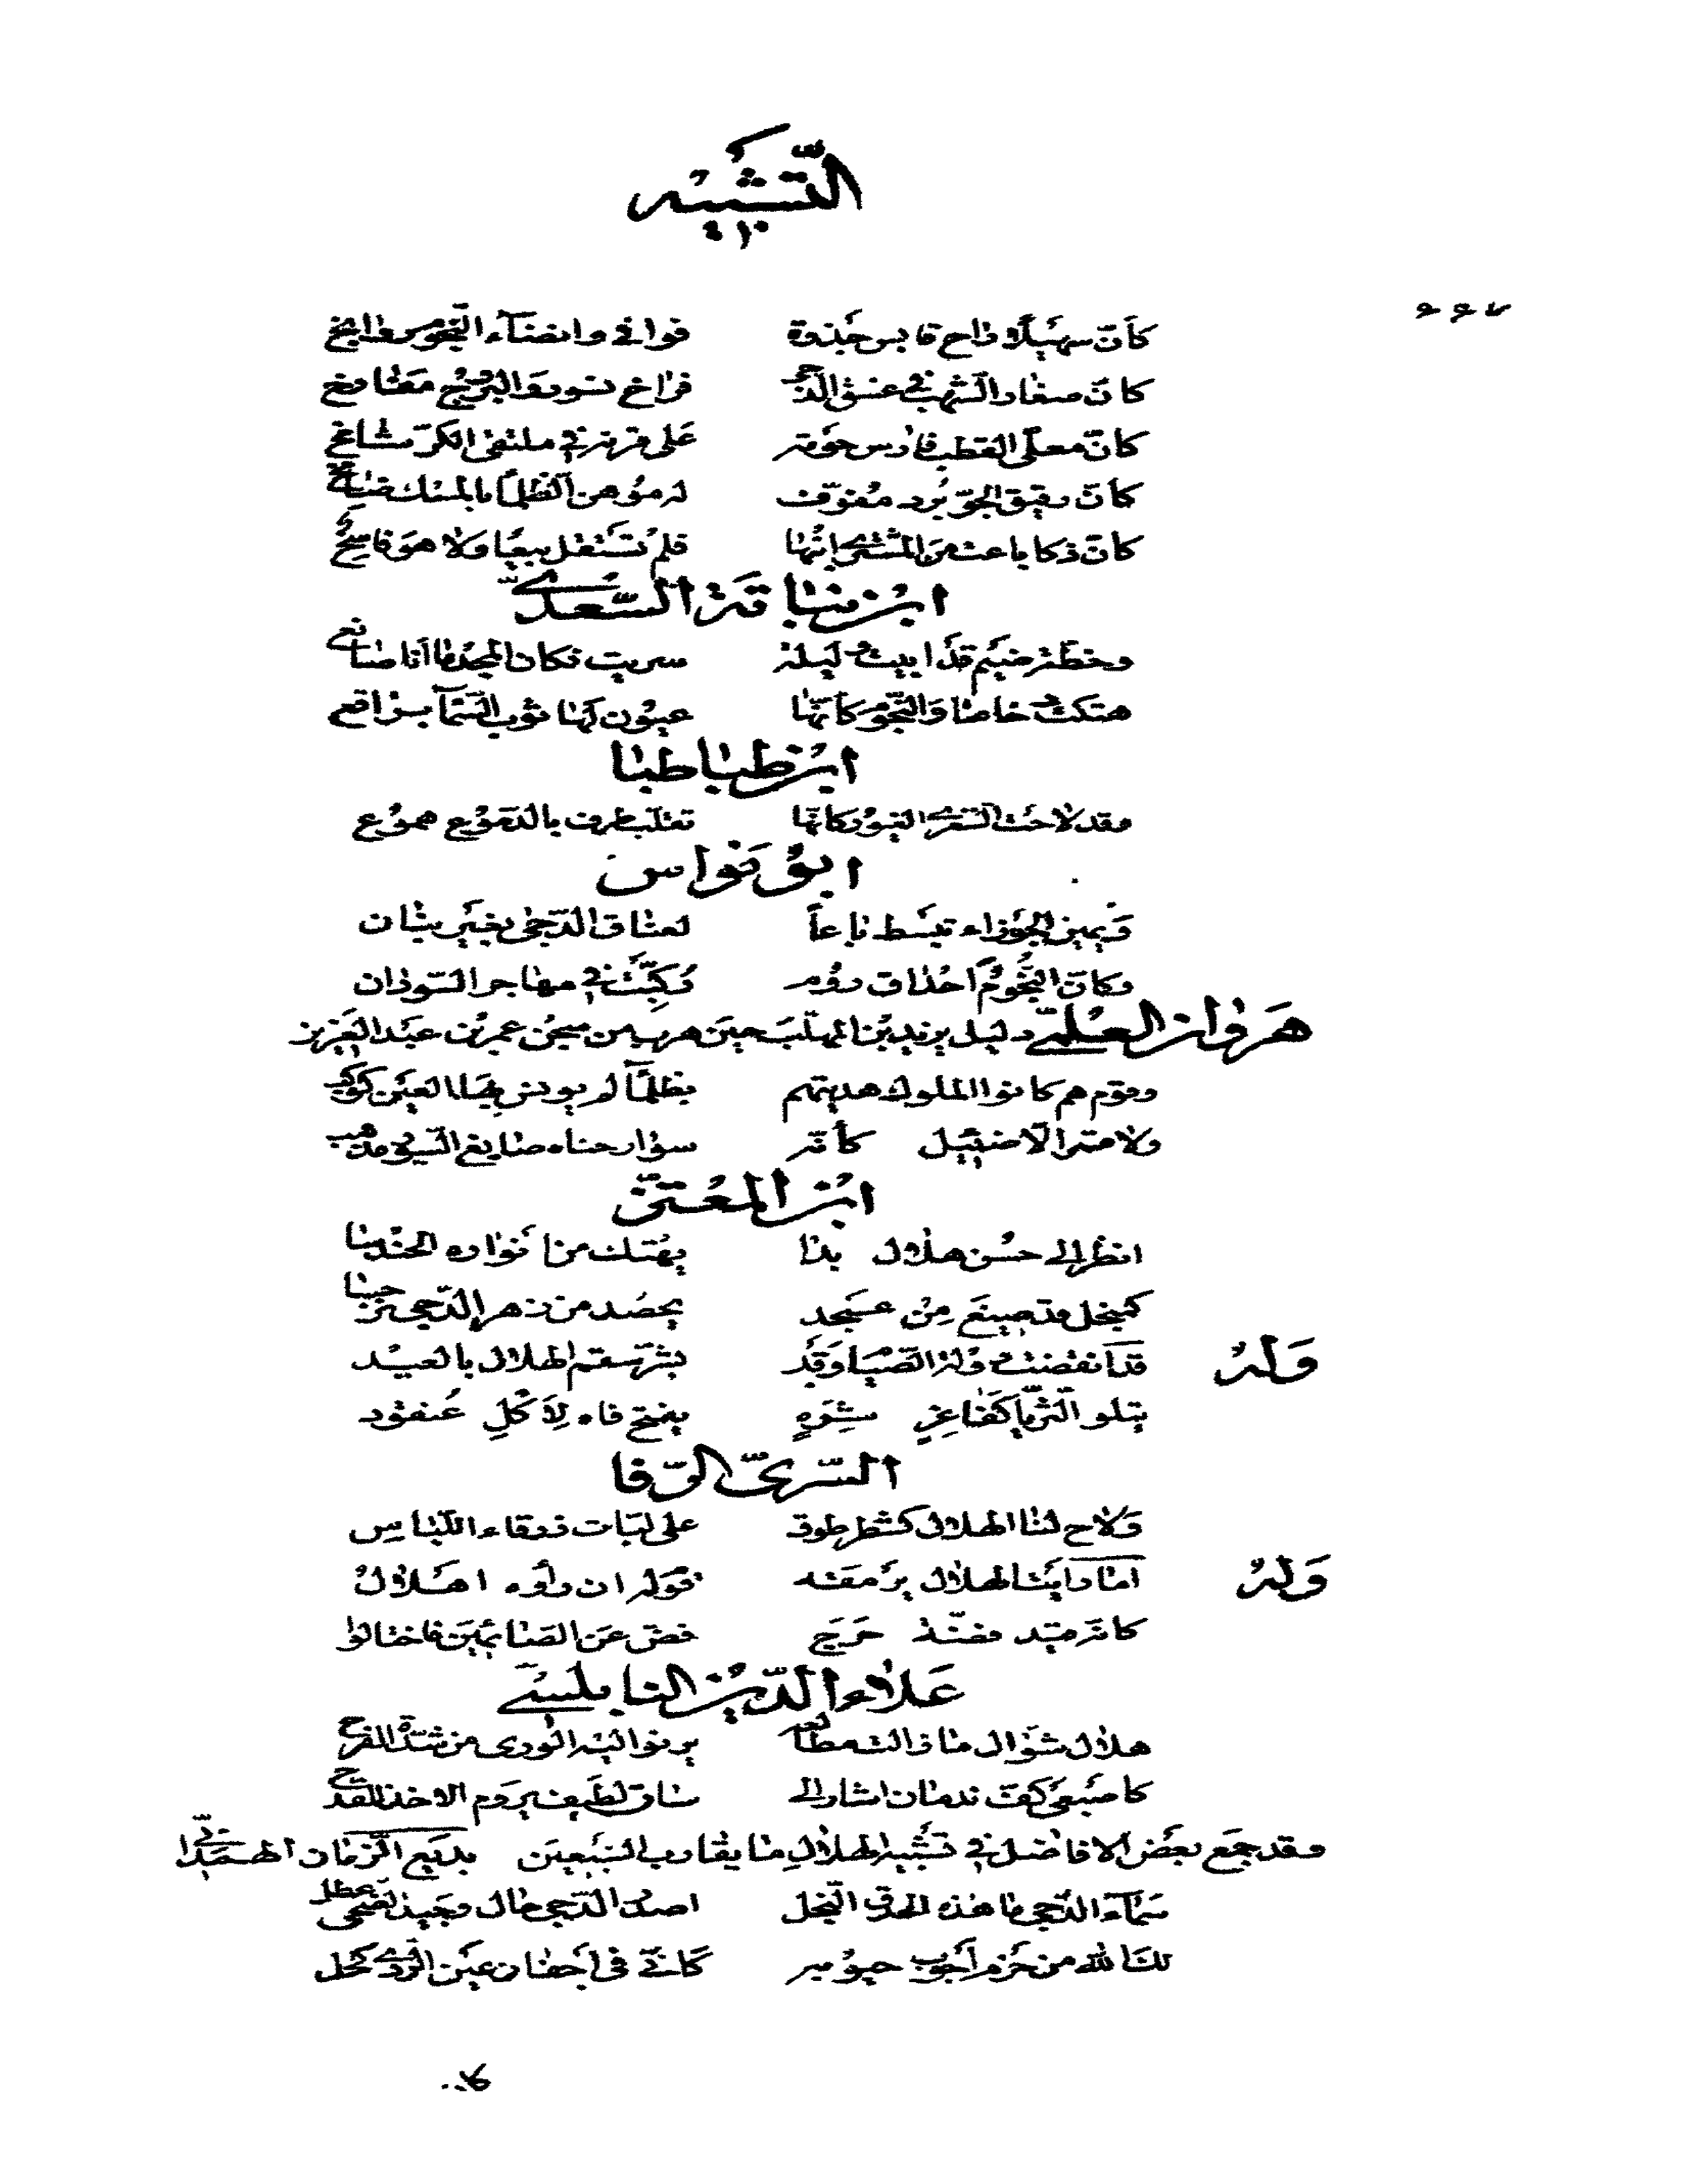 التَّشبيه
كأنّ سهيلًا راح قابس جذوة فوافى وانضآء النجوم روابخ
كانّ صغار الشهب في غسق الدّجى فراخ نسور والبروج مفارخ
كانّ معلّى القطب فارس حومة على قرنه في ملتقى الكرّ شامخ
كانّ رقيق الجوّ بُرد مفوّف له موهن الظلمآ بالمسك ضامخ
كانّ ذكا باعت من المشتري ابنها فلم تستقل بيعًا ولا هو فاسخ
ابن نباتة السّعديّ
وخطّة ضيم قد ابيت وليلة سريت فكان المجد ما أنا صانع
هتكت دجاها والنجوم كأنّها عيون لها ثوب السّمآ براقع
ابن طباطبا
وقد لاحت الشعرى العبور كانّها تقلّب طرف بالدموع هموع
ابو نواس
ويمين الجوزاء تبسط باعاً لعناق الدّجى بغير بنان
وكانّ النّجوم احداق روم رُكّبت في محاجر السّودان
مروان العلميّ دليل يزيد بن المهلّب حين هرب من سجن عمر بن عبد العزيز
وقوم هم كانوا الملوك هديتهم بظلمآ لم يونس بها العين كوكب
ولا قمر الّا ضئيل كأنّه سوار حناه صايغ السّور مذهب
ابن المعتزّ
انظر الى حسن هلال بدا يهتك من انواره الحندسا
كمنجل قد صيغ مِن عسجد يحصد من زهر الدّجى نرجسا
وله قد انقضت دولة الصّيام وقد بشّر سقم الهلال بالعيد
يتلو الثّريّا كفاغرٍ شرِهٍ يفتح فاه لأكل عُنقود
السّريّ الرّفا
ولاح لنا الهلال كشطر طوق على لبّات زرقاء اللّباسِ
وله اما رايت الهلال يرمقه قوم له ان رأوه اهلال
كانّه قيد فضّة حرج فضّ عن الصّائمين فاختالوا
علاء الدّين النابلسيّ
هلال شوّال ما زالت مطالعه يرنو اليه الورى من شدّة الفرح
كاصبعي كفّ ندمان اشار الى ساق لطيف يروم الاخذ للقدح
وقد جمع بعض الافاضل في تشبيه الهلال ما يقارب السّبعين بديع الزّمان الهمذانيّ
سمآء الدّجى ما هذه الحدق النّجل اصدر الدّجى حال وجيد الضّحى عطل
لك الله من عزم أجوب جيوبه كأنّي في أجفان عين الرّدى كحل